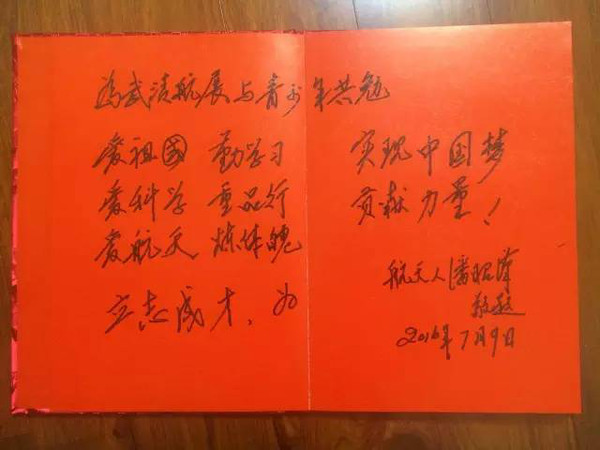 为武清航展与青少年共勉
爱祖国 勤学习
爱科学 重品行
爱航天 炼体魄
立志成才，为
实现中国梦
贡献力量！
航天人 潘昭
2016年7月9日